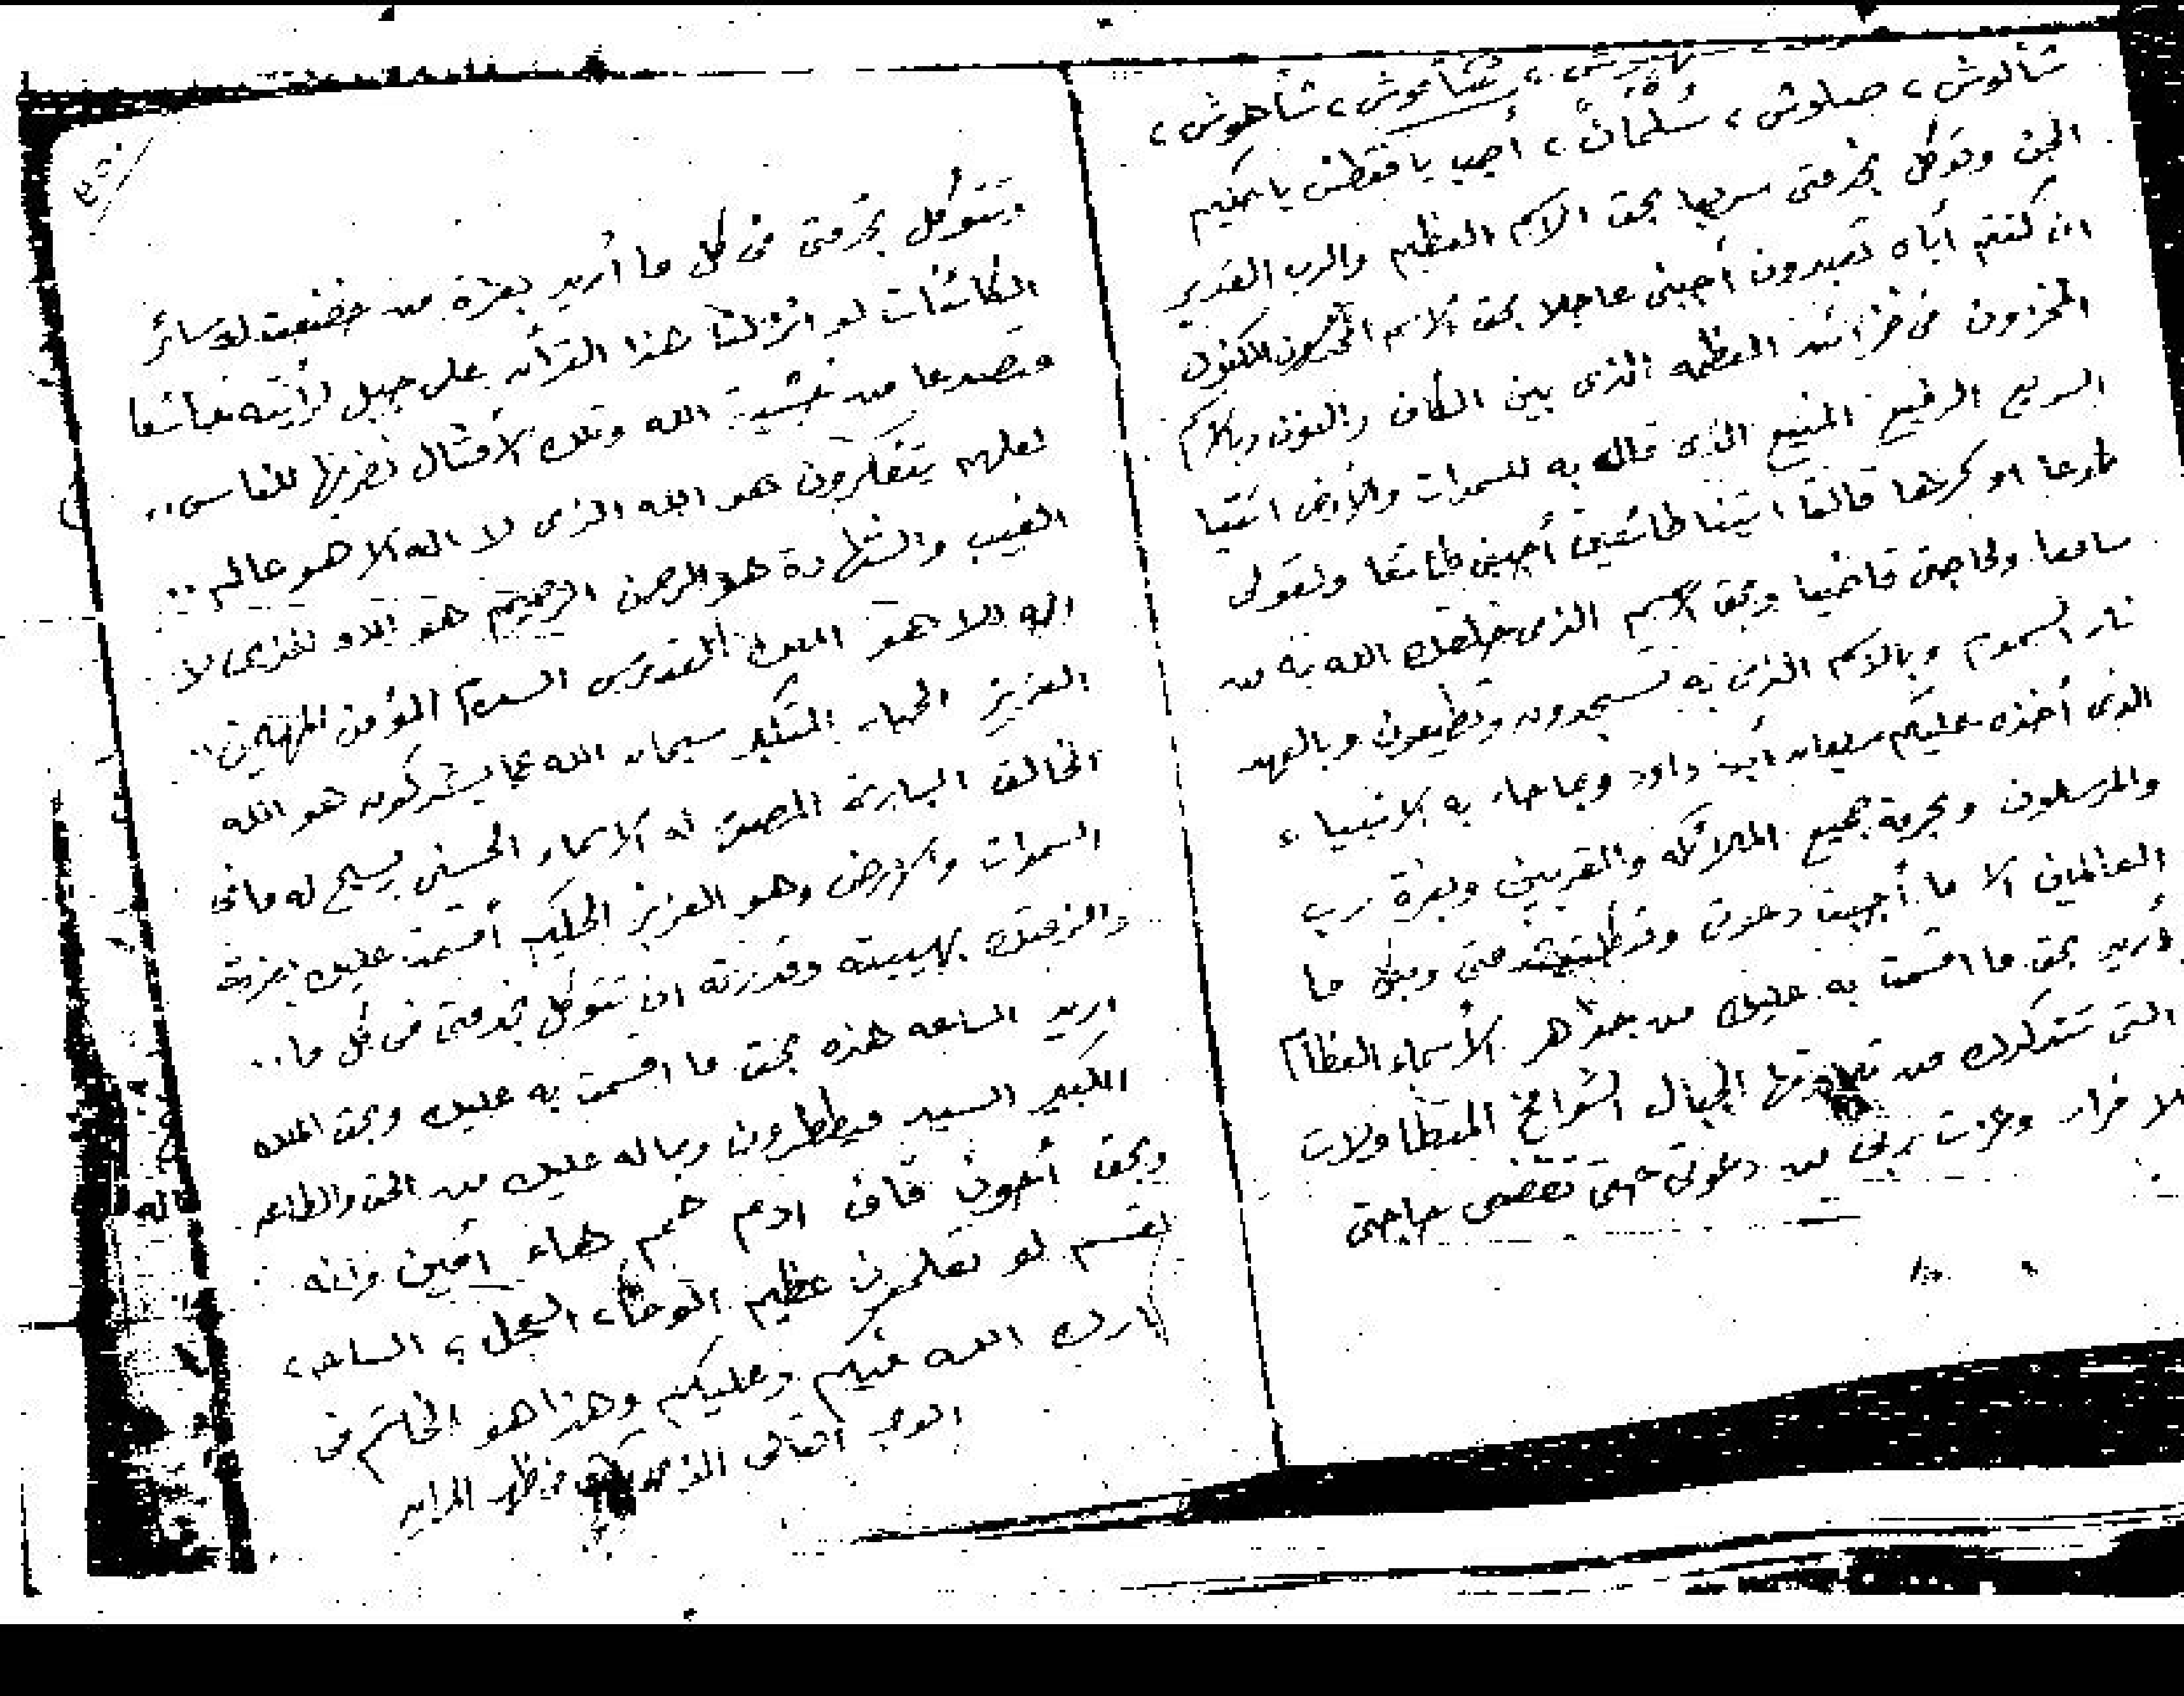 شألوش، صلوش، سُلْمُانٌ، أجب يا فقطش يا حكيم
الجن وتوكل بخدمتى سريعا بحق الاسم العظيم والرب القدير
ان كنتم اياه تعبدون أجبنى عاجلا بحق الاسم المكنون
المخزون فى خزائن العظمه الذى بين الكاف والنون وبالاسم
السريع الرفيع المنيع الذى قال به للسموات والأرض ائتيا
طوعا او كرها قالتا اتينا طائعين أجبنى طائعا ولقولى
سامعا ولحاجتى قاضيا وبحق الاسم الذى خلقك الله به من
نار السموم وبالاسم الذى به تسجدون وتطيعون وبالعهد
الذى أخذه عليكم سليمان ابن داود وبما جاء به الانبياء
والمرسلون وبحرمة جميع الملائكه والمقربين وبعزة رب
العالمين الا ما أجبت دعوتى وبكل ما
أريد بحق ما اقسمت به عليك من جواهر الأسماء العظام
التى تتدكدك من تلاوتها الجبال الشوامخ المتطاولات
لا فرار من دعوتى حتى تقضى حاجتى
وتتوكل بخدمتى فى كل ما أريد بعزة من خضعت له سائر
الكائنات لو انزلنا هذا القرآن على جبل لرأيته خاشعا
متصدعا من خشية الله وتلك الأمثال نضربها للناس..
لعلهم يتفكرون هو الله الذى لا اله الا هو عالم..
الغيب والشهادة هو الرحمن الرحيم هو الله الذى لا
اله الا هو الملك القدوس السلام المؤمن المهيمن..
العزيز الجبار المتكبر سبحان الله عما يشركون هو الله
الخالق البارئ المصور له الاسماء الحسنى يسبح له ما فى
السموات والارض وهو العزيز الحكيم أقسمت عليك بعزة
والزمتك بهيبته وقدرته ان تتوكل بخدمتى فى كل ما..
اريد الساعه هذه بحق ما اقسمت به عليك وبحق الملك
الكبير السيد ميططرون وبماله عليك من الحق والطاعه
وبحق أهون قاف ادم حم هاء امين وانه
لقسم لو تعلمون عظيم الوحا، العجل، الساعه،
بارك الله فيكم وعليكم وهذا هو الخاتم فى
الوجه الثانى الذى فى ظهر المرايه